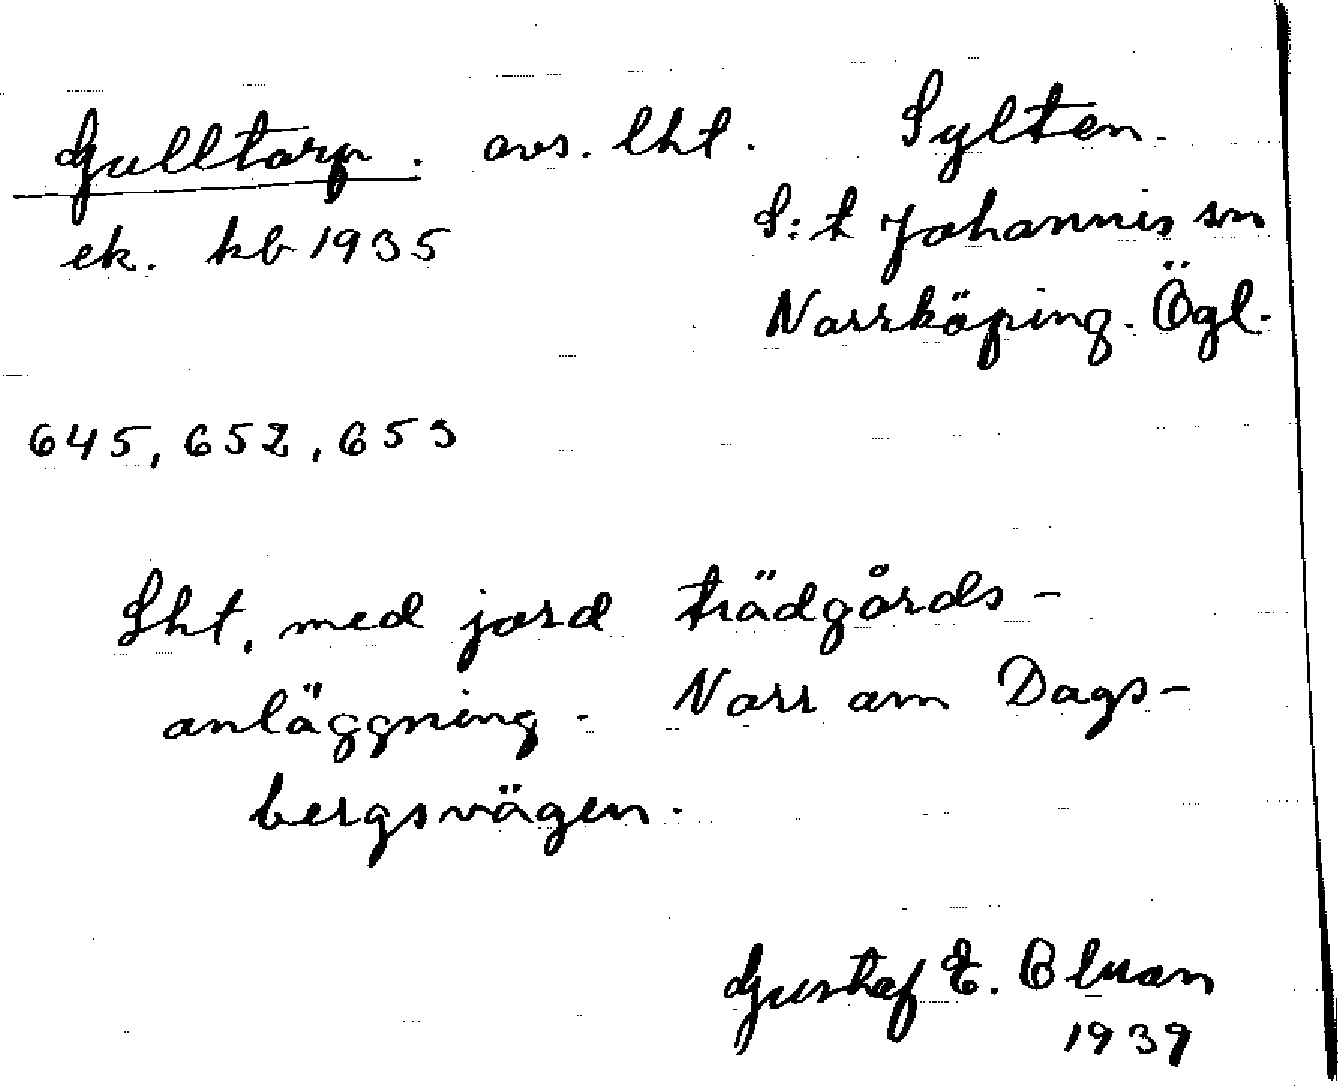 Gulltorp. avs. lht. Sylten.
ek. kb 1935 S:t Johannis sn
Norrköping. Ögl.
645, 652, 653
Lht. med jord trädgårds-
anläggning. Norr om Dags-
bergsvägen.
Gustaf E.
1939